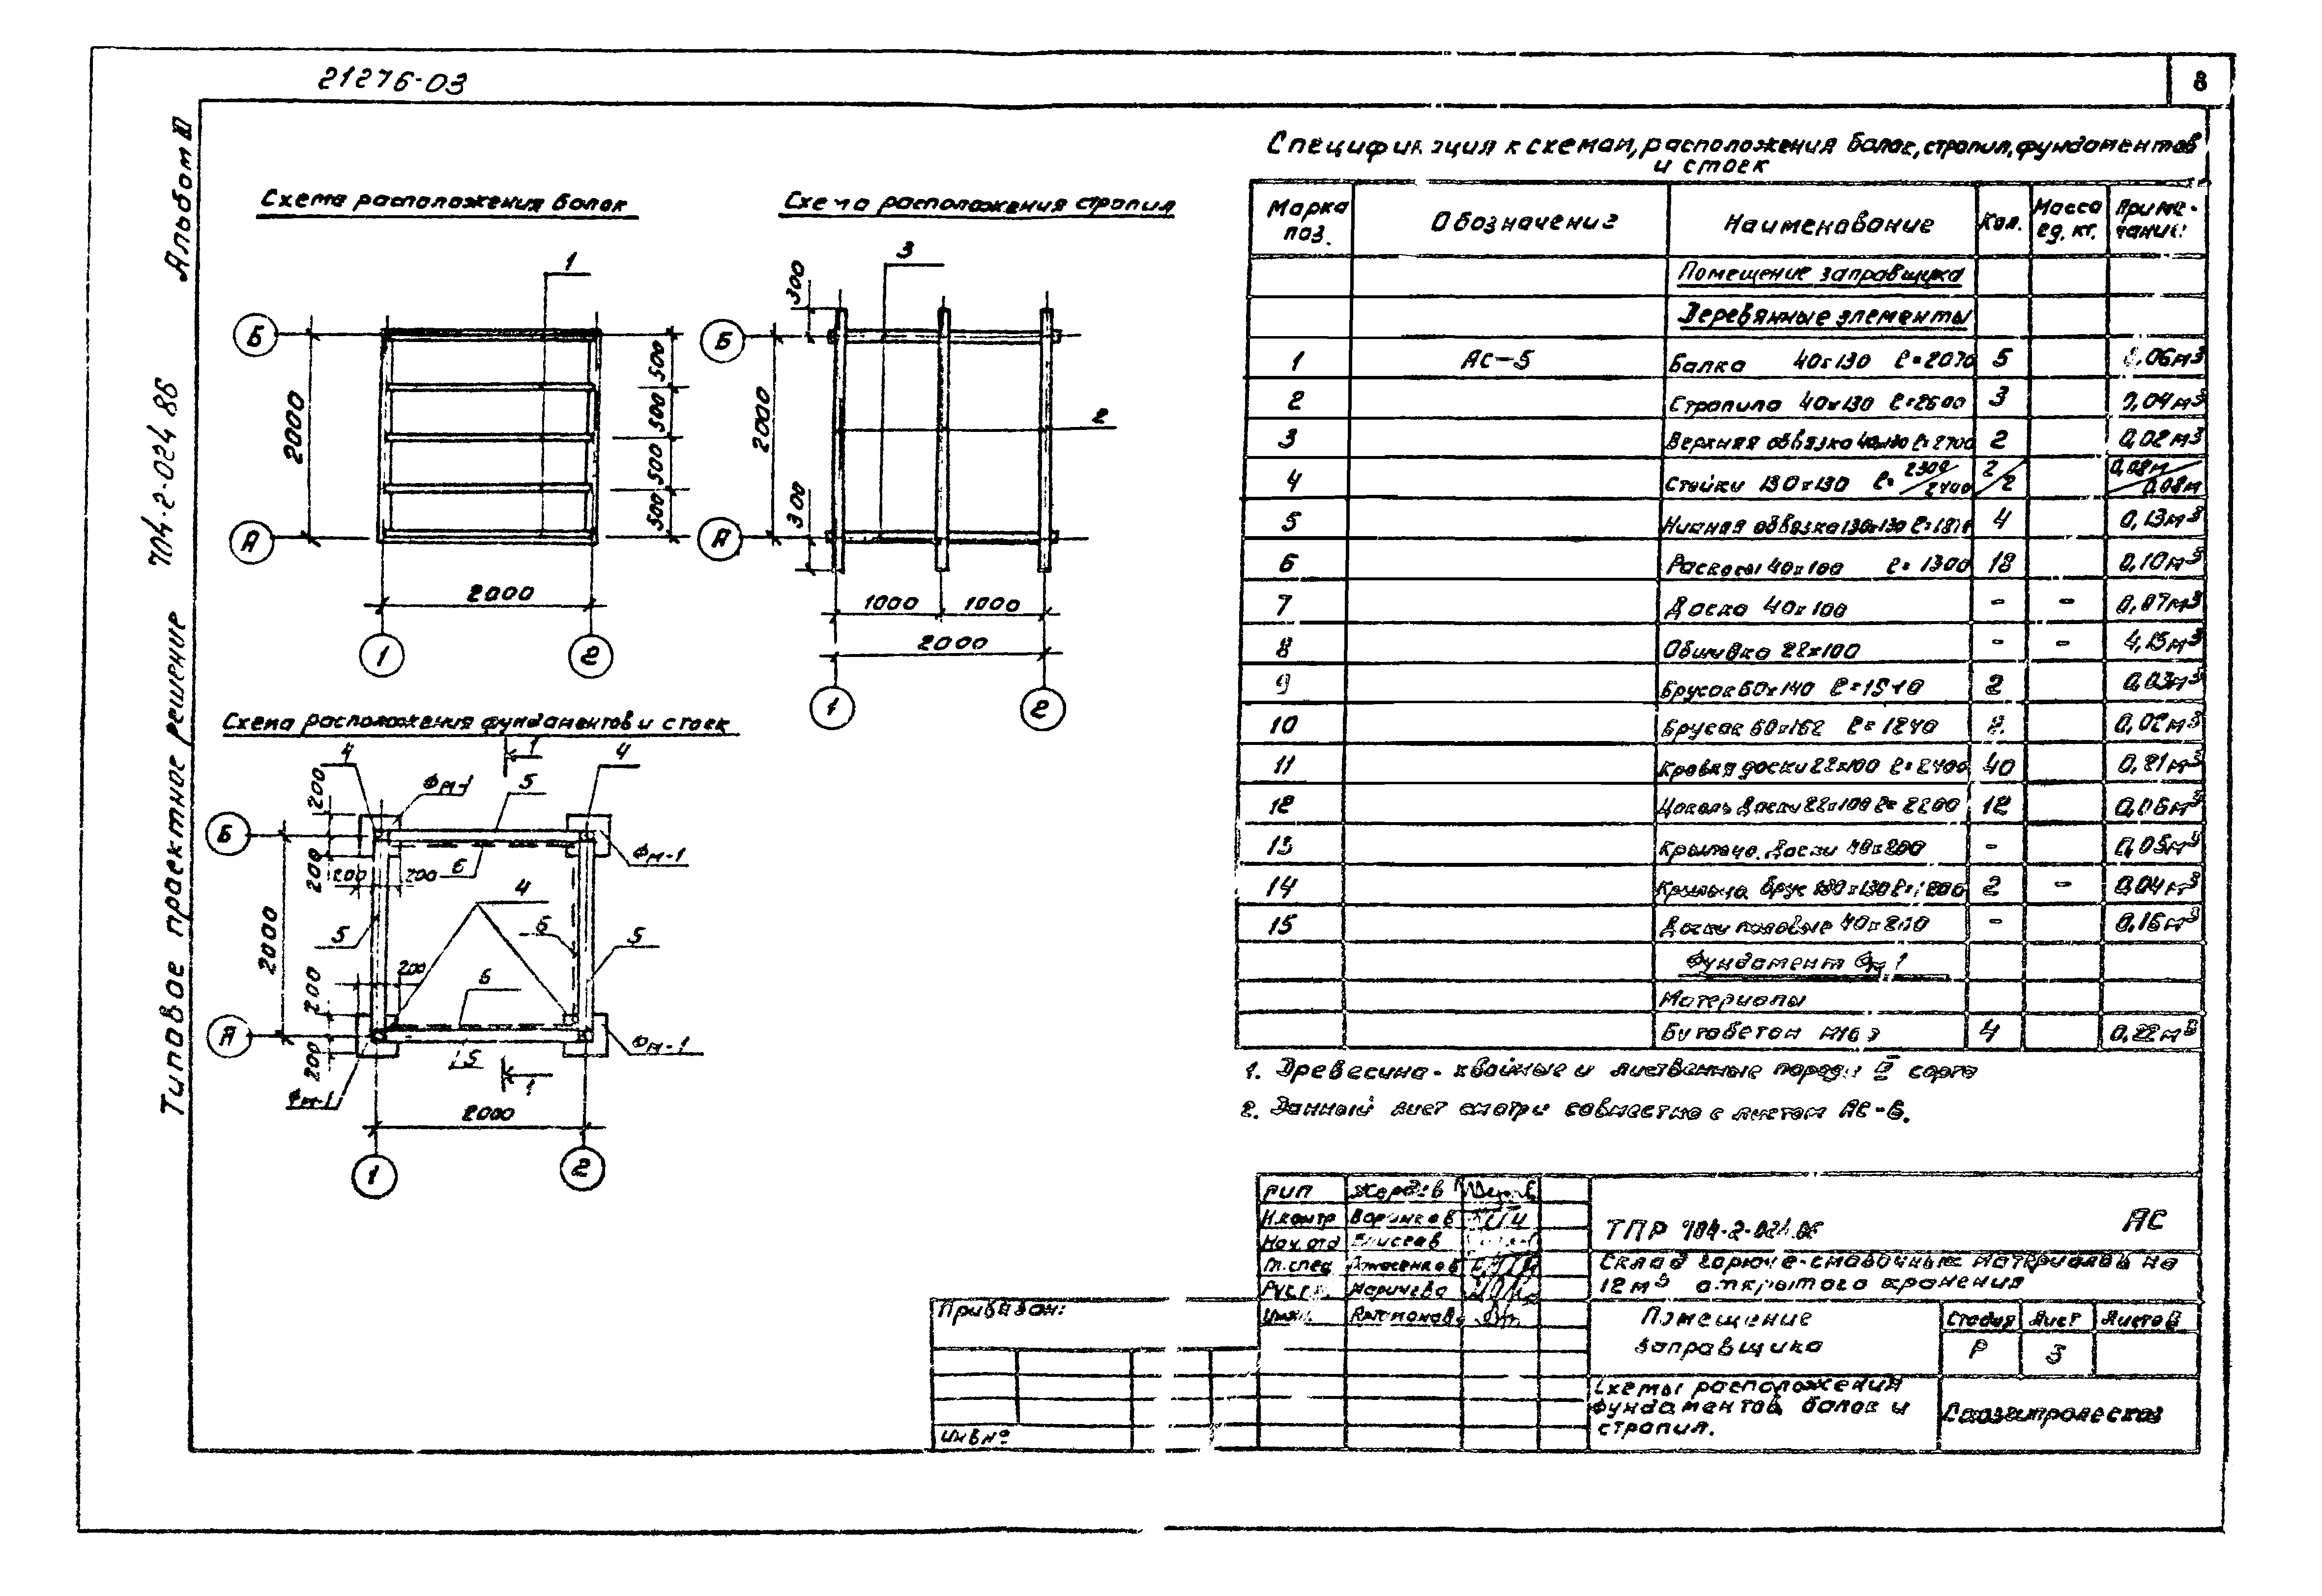 21276-03
8
Альбом III
Типовое проектное решение 704-2-024 86
Схема расположения балок
1
Б
А
2000
500
500
500
500
2000
1
2
Схема расположения стропил
3
300
Б
2000
2
300
А
1000 1000
2000
1
2
Схема расположения фундаментов и стоек
4
Фм-1
1
5
4
200
Б
200
200 200
6
Фм-1
4
2000
5
6
5
200
200
6
А
200
5
Фм-1
Фм-1
1
2000
1
2
Спецификация к схемам, расположения балок, стропил, фундаментов
и стоек
Марка поз. Обозначение Наименование Кол. Масса ед. кг. Примечание
Помещение заправщика
Деревянные элементы
1 АС-5 Балка 40х130 ℓ=2070 5 0,06м³
2 Стропила 40х130 ℓ=2600 3 0,04м³
3 Верхняя обвязка ℓ=2700 2 0,02м³
4 Стойки 130х130 ℓ=2300/2400 2/2 0,08м/0,08м
5 Нижняя обвязка 130х130 4 0,13м³
6 Раскосы 40х100 ℓ=1300 18 0,10м³
7 Доска 40х100 - - 0,07м³
8 Обшивка 22х100 - - 4,15м³
9 Брусок 60х140 2 0,03м³
10 Брусок 60х162 ℓ=1240 2 0,02м³
11 Кровля доски 22х100 ℓ=2400 40 0,21м³
12 Цоколь доски 22х100 ℓ=2200 12 0,06м³
13 Крыльцо. Доски 40х200 - 0,05м³
14 Крыльцо брус 130х130 2 - 0,04м³
15 Доски половые 40х200 - 0,16м³
Фундамент Фм 1
Материалы
Бутобетон 4 0,22м³
1. Древесина - хвойные и лиственные породы II сорта
2. Данный лист смотри совместно с листом АС-6.
ГИП Жердев
Н.контр Воринков
Нач. отд Елисеев
Гл.спец
Рук.гр. Маричева
Инж. Артамонова
ТПР 704-2-024.86 АС
Склад горюче-смазочных материалов на
12м³ открытого хранения
Помещение
заправщика
Стадия Лист Листов
Р 3
Схемы расположения
фундаментов, балок и
стропил.
Союзгипролесхоз
Привязан:
Инв №